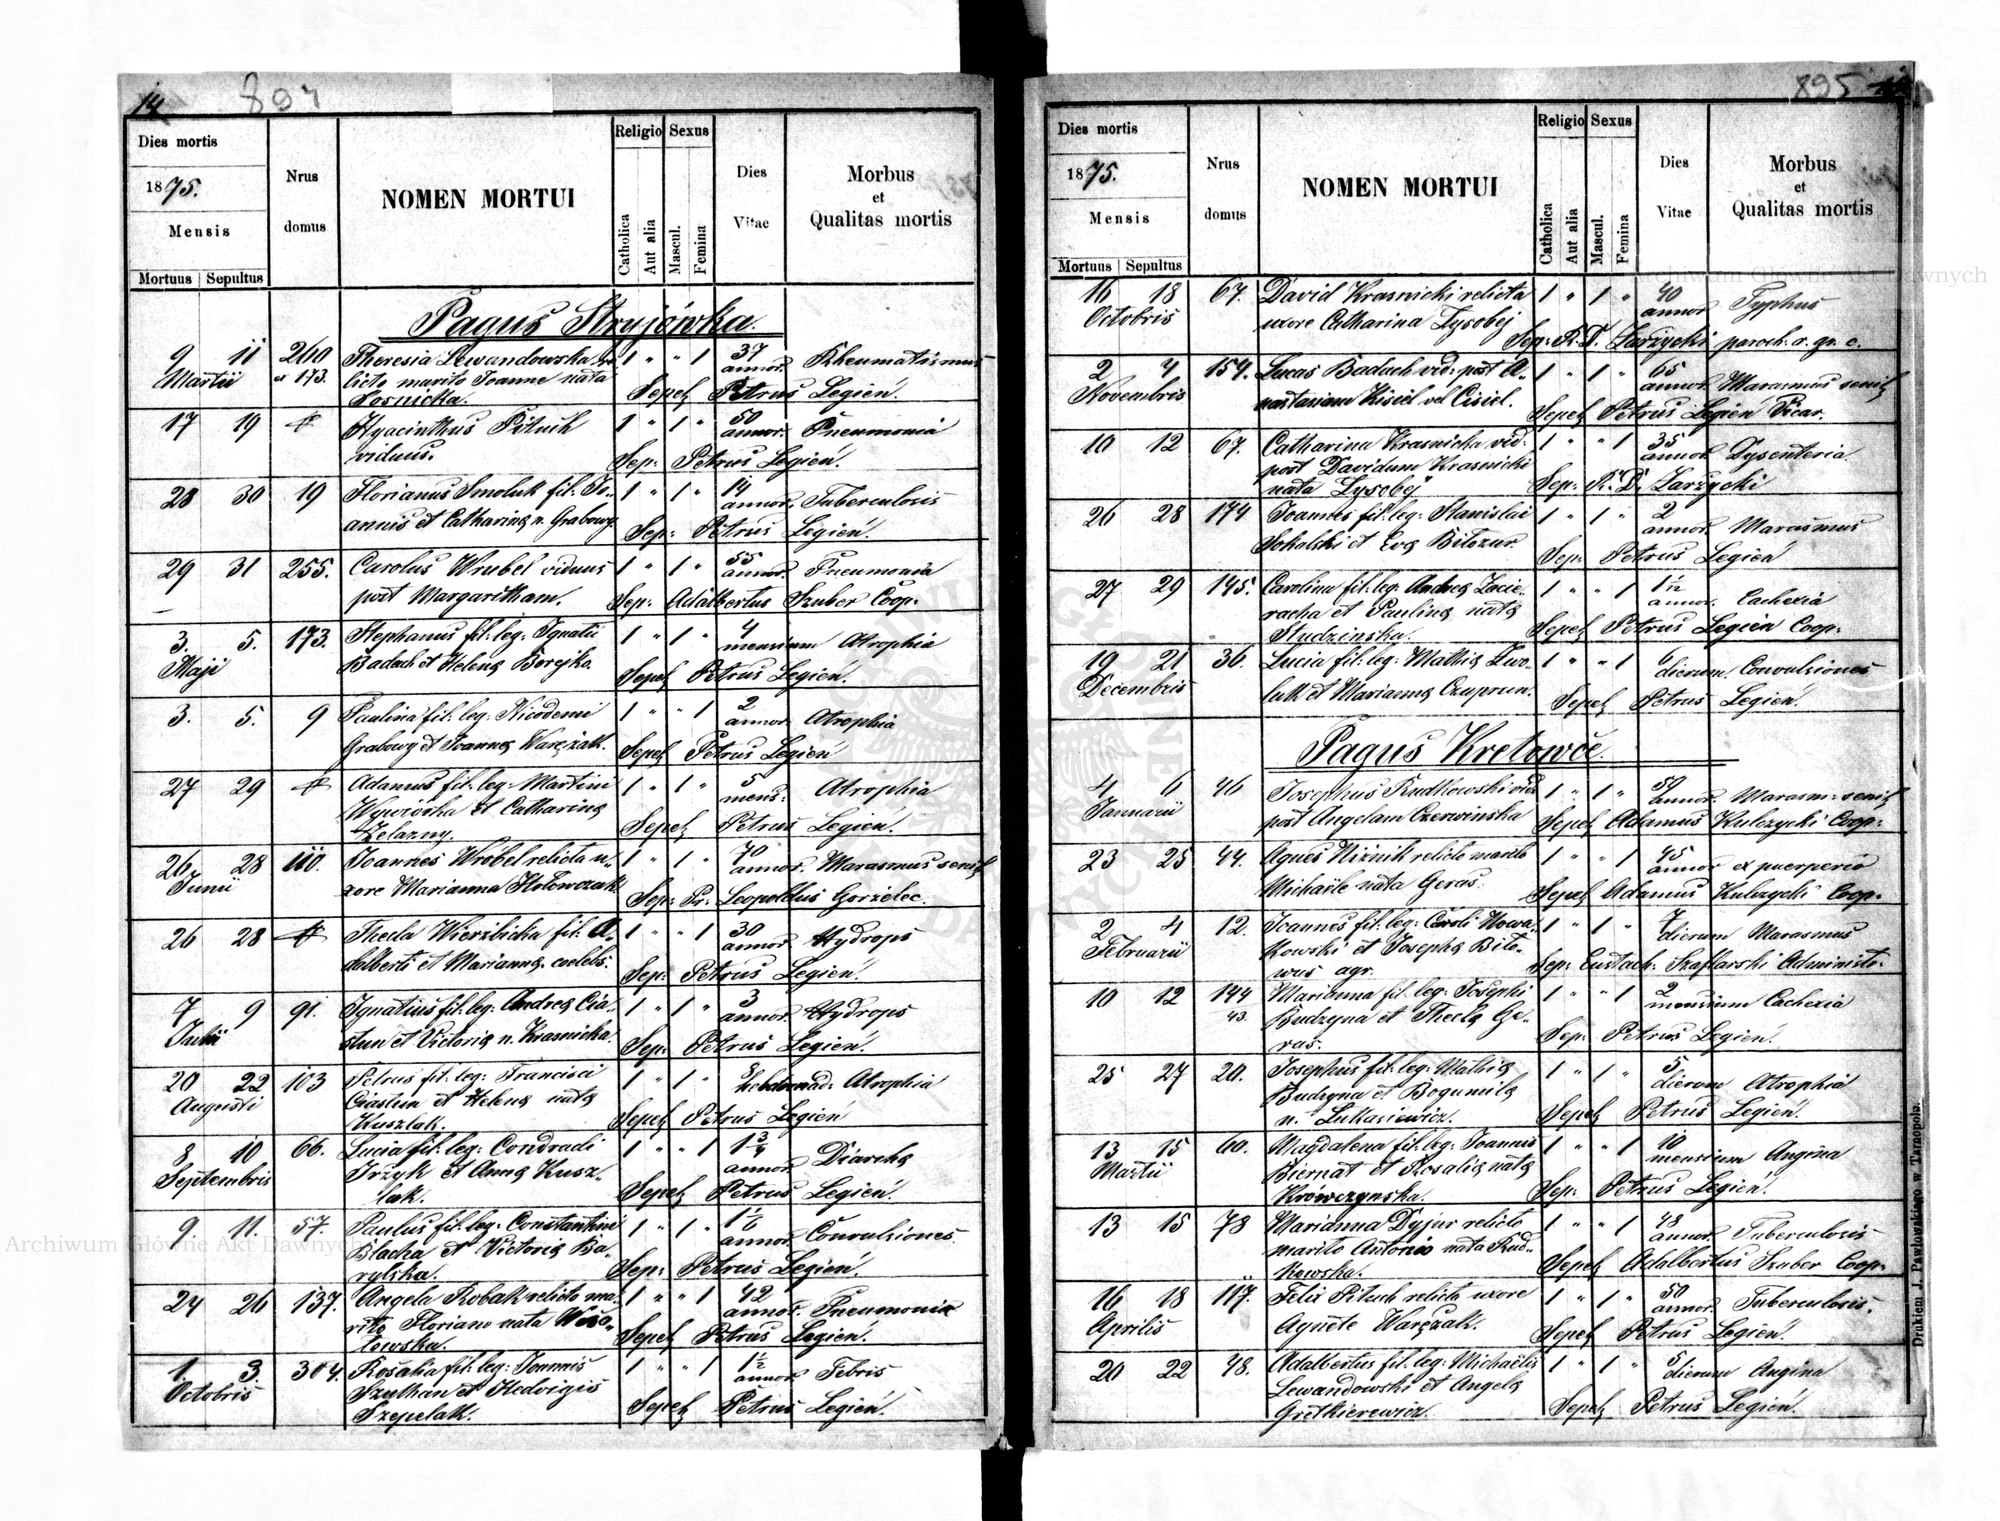 14 894
Dies mortis
1875.
Mensis
Mortuus Sepultus
Nrus domus
NOMEN MORTUI
Religio Sexus
Catholica Aut alia Mascul. Femina
Dies Vitae
Morbus et Qualitas mortis
Pagus Stryjówka.
9 11 260 Theresia Lewandowska re- 1 " " 1 37 Rheumatismus
Martii et 173. licto marito Joanne nata annor.
Sosnicka. Sepel Petrus Legień.
17 19 Hyacinthus Pituch 1 " 1 " 50 annor. Pneumonia
viduus. Sep: Petrus Legień.
28 30 19 Florianus Smoluk fil. Jo- 1 " 1 " 14 annor. Tuberculosis
annis et Catharina n. Grabowy. Sep: Petrus Legień.
29 31 255. Carolus Wrubel viduus 1 " 1 " 55 annor. Pneumonia
post Margaretham. Sep: Adalbertus Szuber Coop.
3. 5. 173. Stephanus fil: leg: Ignatii 1 " 1 " 4 mensium Atrophia
Maji Badach et Helena Borejko. Sepel Petrus Legień.
3. 5. 9 Paulina fil: leg: Nicodemi 1 " " 1 2 annor. Atrophia
Grabowy et Joanna Warczak. Sepel Petrus Legień
27 29 Adamus fil: leg: Martini 1 " 1 " 5 mens: Atrophia
et Catharina
Żelazny. Sepel Petrus Legień.
26 28 110. Joannes Wróbel relicta u- 1 " 1 " 70 annor. Marasmus senil
Junii xore Marianna Hołowczak Sep: Pr: Leopoldus Gorzelec.
26 28 Thecla Wierzbicka fil: A- 1 " " 1 30 annor. Hydrops
dalberti et Marianna coelebs. Sep: Petrus Legień.
7 9 91. Ignatius fil: leg: Andrea Cia- 1 " 1 " 3 annor. Hydrops
Julii stun et Victoria n. Krasnicka. Sep: Petrus Legień.
20 22 103 Petrus fil: leg: Francisci 1 " 1 " hebdomad: Atrophia
Augusti Ciastun et Helena nata
Kuszlak. Sepel Petrus Legień
8 10 66. Lucia fil: leg: Condradi 1 " " 1 1 3/4 annor. Diarcha
Septembris Irzyk et Anna Kusz-
lak. Sepel Petrus Legień.
9. 11. 57. Paulus fil: leg: Constantini 1 " 1 " annor. Convulsiones.
Blacha et Victoria Ba-
rylska. Sep: Petrus Legień.
24 26 137. Angela Robak relicto ma- 1 " " 1 42 annor. Pneumonia
rito Floriano nata
Sepel Petrus Legień.
1. 3. 304. Rosalia fil: leg: Joannis 1 " " 1 1 1/2 annor. Febris
Octobris Szythan et Hedvigis
Szepelak. Sepel Petrus Legień.
895
Dies mortis
1875.
Mensis
Mortuus Sepultus
Nrus domus
NOMEN MORTUI
Religio Sexus
Catholica Aut alia Mascul. Femina
Dies Vitae
Morbus et Qualitas mortis
16 18 67. David Krasnicki relicta 1 " 1 " 40 annor Typhus
Octobris uxore Catharina Lysobej Sep: R. D. Zarzycki paroch. r. gr. c.
2 4 154. Lucas Badach vid: post A- 1 " 1 " 65 annor. Marasmus senil
Novembris nastasiam Kisiel vel Cisiel. Sepel Petrus Legień Vicar.
10 12 67. Catharina Krasnicka vid: 1 " " 1 35 annor. Dysenteria.
post Davidum Krasnicki
nata Lysobej Sep: R. D. Zarzycki
26 28 174 Joannes fil: leg: Stanislai 1 " 1 " 2 annor. Marasmus
Sokalski et Eva Bitozur. Sep: Petrus Legień
27 29 145. Carolina fil: leg: Andrea Zacie- 1 " " 1 1 1/2 annor. Cachexia
racha et Paulina nata
Studzinska. Sepel Petrus Legien Coop.
19 21 36. Lucia fil: leg: Mathia Zwo- 1 " " 1 dierum. Convulsiones
Decembris lak et Marianna Czuprun. Sepel Petrus Legień.
Pagus Kretowce.
4 6 46 Josephus Rudkowski vid 1 " 1 " 59 annor. Marasm: senil
Januarii post Angelam Czerwinska Sepel Adamus Kulczycki Coop:
23 25 44. Agnes Niżnik relicto marito 1 " " 1 45 annor ex puerperio
Michaële nata Geras. Sepel Adamus Kulczycki Coop.
2 4 12. Joannes fil: leg: Caroli Nowa- 1 " 1 " 7 dierum Marasmus
Februarii kowski et Josepha Biło-
wus agr. Sep: Eustach: Szaflarski Administr.
10 12 144 Marianna fil: leg: Josephi 1 " " 1 2 mensium Cachexia
43. Budzyna et Thecla Ge-
ras. Sep: Petrus Legień.
25 27 20. Josephus fil: leg: Mathia 1 " 1 " 5 dierum Atrophia
Budzyna et Bogumila
n. Lukasiewicz. Sepel Petrus Legień.
13 15 60. Magdalena fil: leg: Joannis 1 " " 1 10 mensium Angina
Martii Biernat et Rosalia nata
Krowczynska. Sep: Petrus Legień.
13 15 78 Marianna Dyjur relicto 1 " " 1 48 annor. Tuberculosis
marito Antonio nata Rud-
kowska. Sepel Adalbertus Szuber Coop.
16 18 117. Felix Pituch relicta uxore 1 " 1 " 50 annor. Tuberculosis.
Aprilis Agnete Warczak. Sepel Petrus Legień.
20 22 48. Adalbertus fil: leg: Michaëlis 1 " 1 " 5 dierum Angina
Lewandowski et Angela
Gretkierewicz. Sepel Petrus Legień.
Drukiem J. Pawłowskiego w Tarnopolu.
Archiwum Główne Akt Dawnych
Archiwum Główne Akt Dawnych